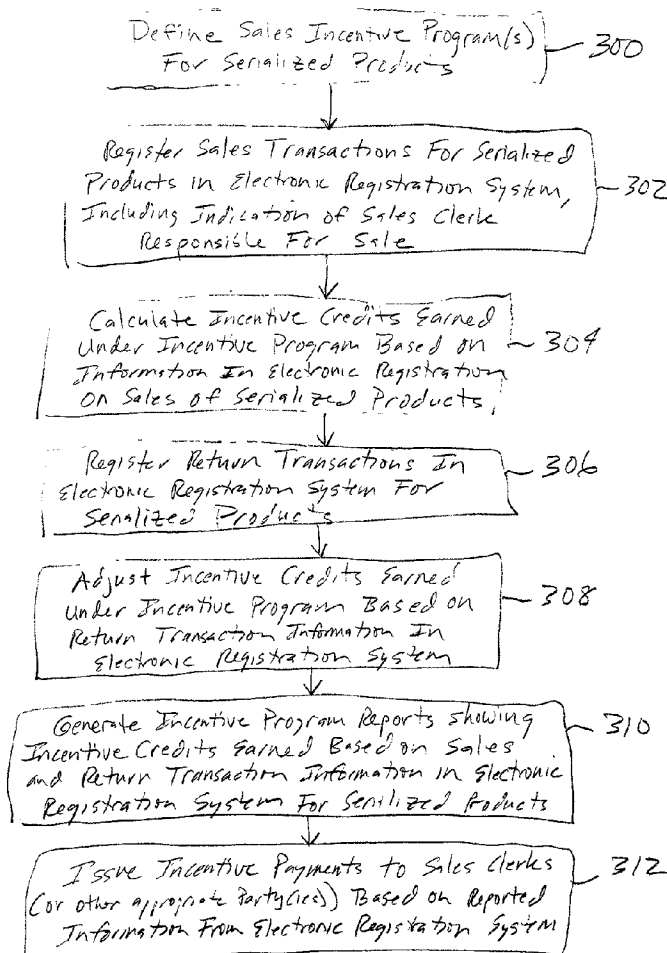 Define Sales Incentive Program(s)
For Serialized Products
300
Register Sales Transactions For Serialized
Products in Electronic Registration System,
Including Indication of Sales Clerk
Responsible For Sale
302
Calculate Incentive Credits Earned
Under Incentive Program Based on
Information In Electronic Registration
On Sales of Serialized Products
304
Register Return Transactions In
Electronic Registration System For
Serialized Products
306
Adjust Incentive Credits Earned
Under Incentive Program Based on
Return Transaction Information In
Electronic Registration System
308
Generate Incentive Program Reports Showing
Incentive Credits Earned Based on Sales
and Return Transaction Information in Electronic
Registration System For Serilized Products
310
Issue Incentive Payments to Sales Clerks
(or other appropriate Party(ies)) Based on Reported
Information From Electronic Registration System
312